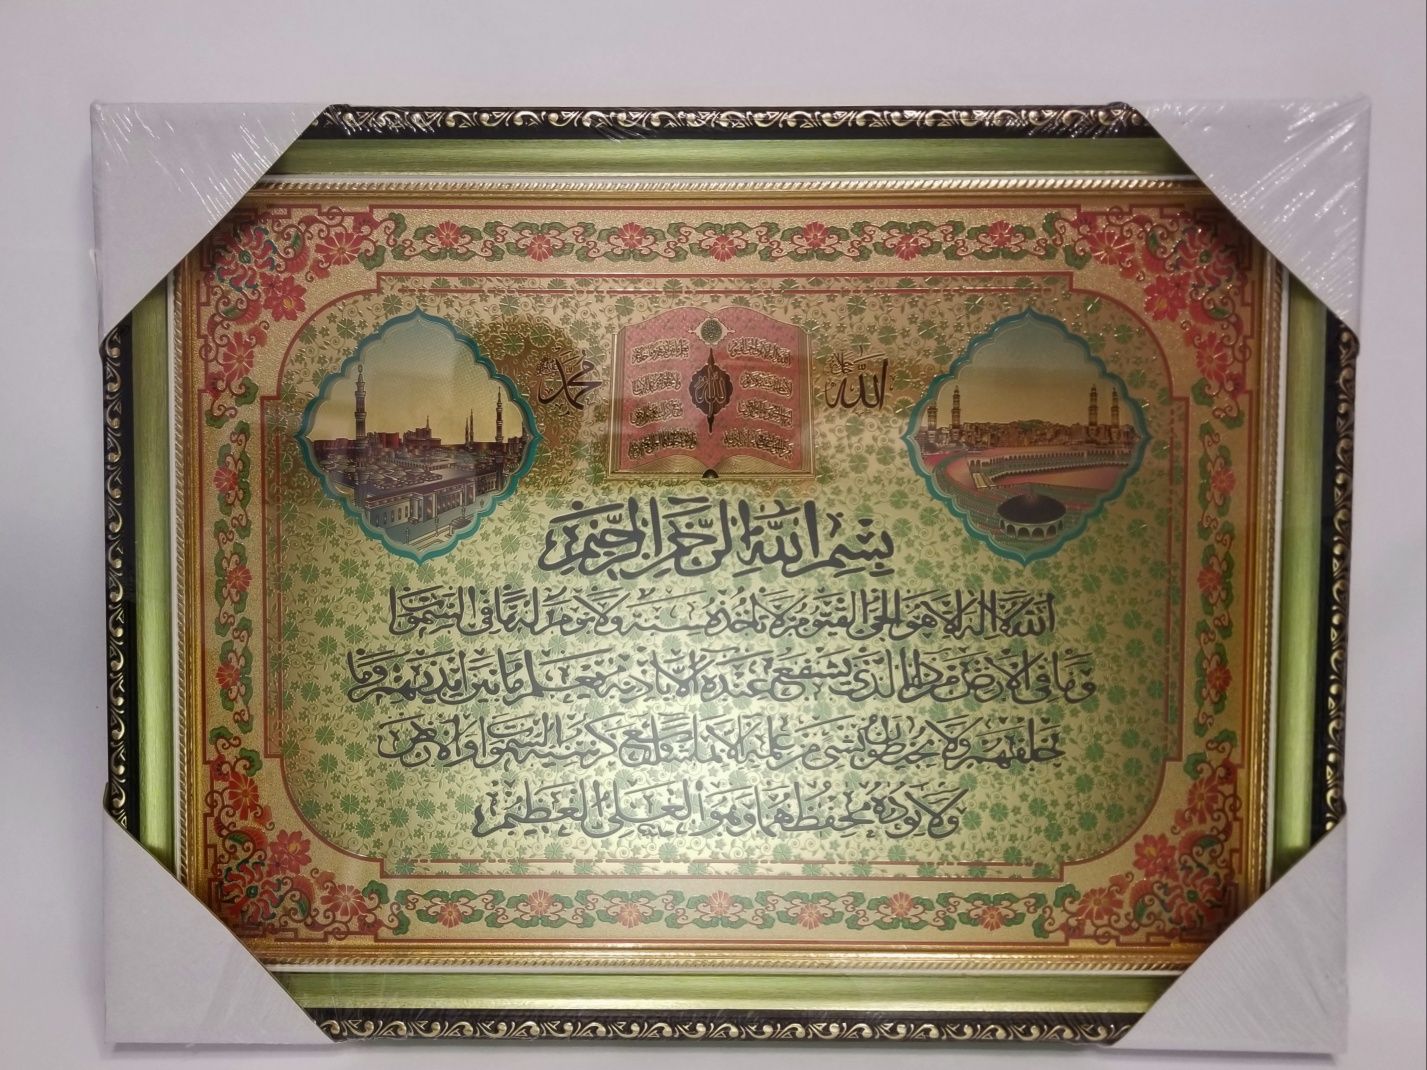 الله
محمد
الله
بسم الله الرحمن الرحيم
الله لا إله إلا هو الحي القيوم لا تأخذه سنة ولا نوم له ما في السموا
وما في الأرض من ذا الذي يشفع عنده إلا بإذنه يعلم ما بين أيديهم وما
خلفهم ولا يحيطون بشيء من علمه إلا بما شاء وسع كرسيه السموا والأرض
ولا يؤده حفظهما وهو العلي العظيم